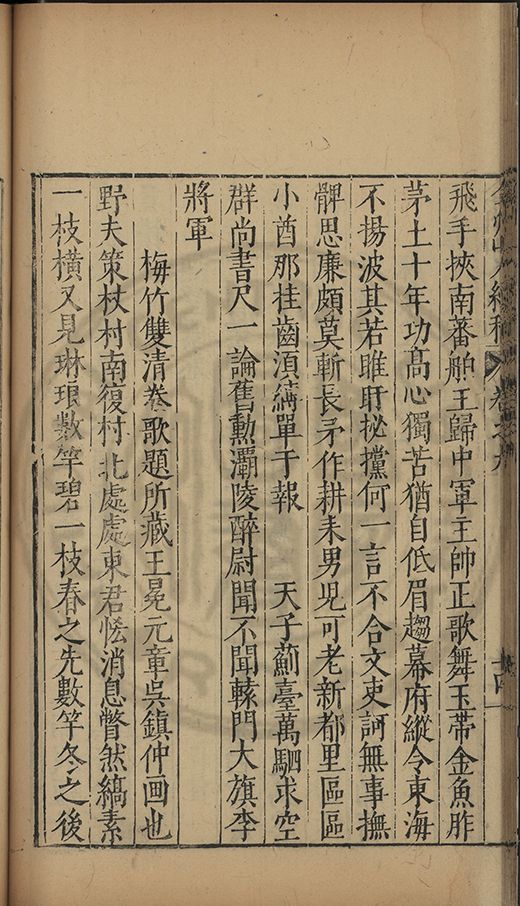 飛手挾南蕃舶王歸中軍主帥正歌舞玉帶金魚胙
茅土十年功髙心獨苦猶自低眉趨幕府縱令東海
不揚波其若睢盱挻攩何一言不合文吏訶無事撫
髀思廉頗莫斬長矛作耕耒男児可老新都里區區
小酋那挂齒湏縛單于報　天子薊臺萬駟求空
群尚書尺一論舊勲灞陵醉尉聞不聞轅門大旗李
將軍
梅竹雙清卷歌題所藏王冕元章吳鎮仲画也
野夫策杖村南復村北處處東君恡消息瞥然縞素
一枝橫又見琳琅數竿碧一枝春之先數竿冬之後